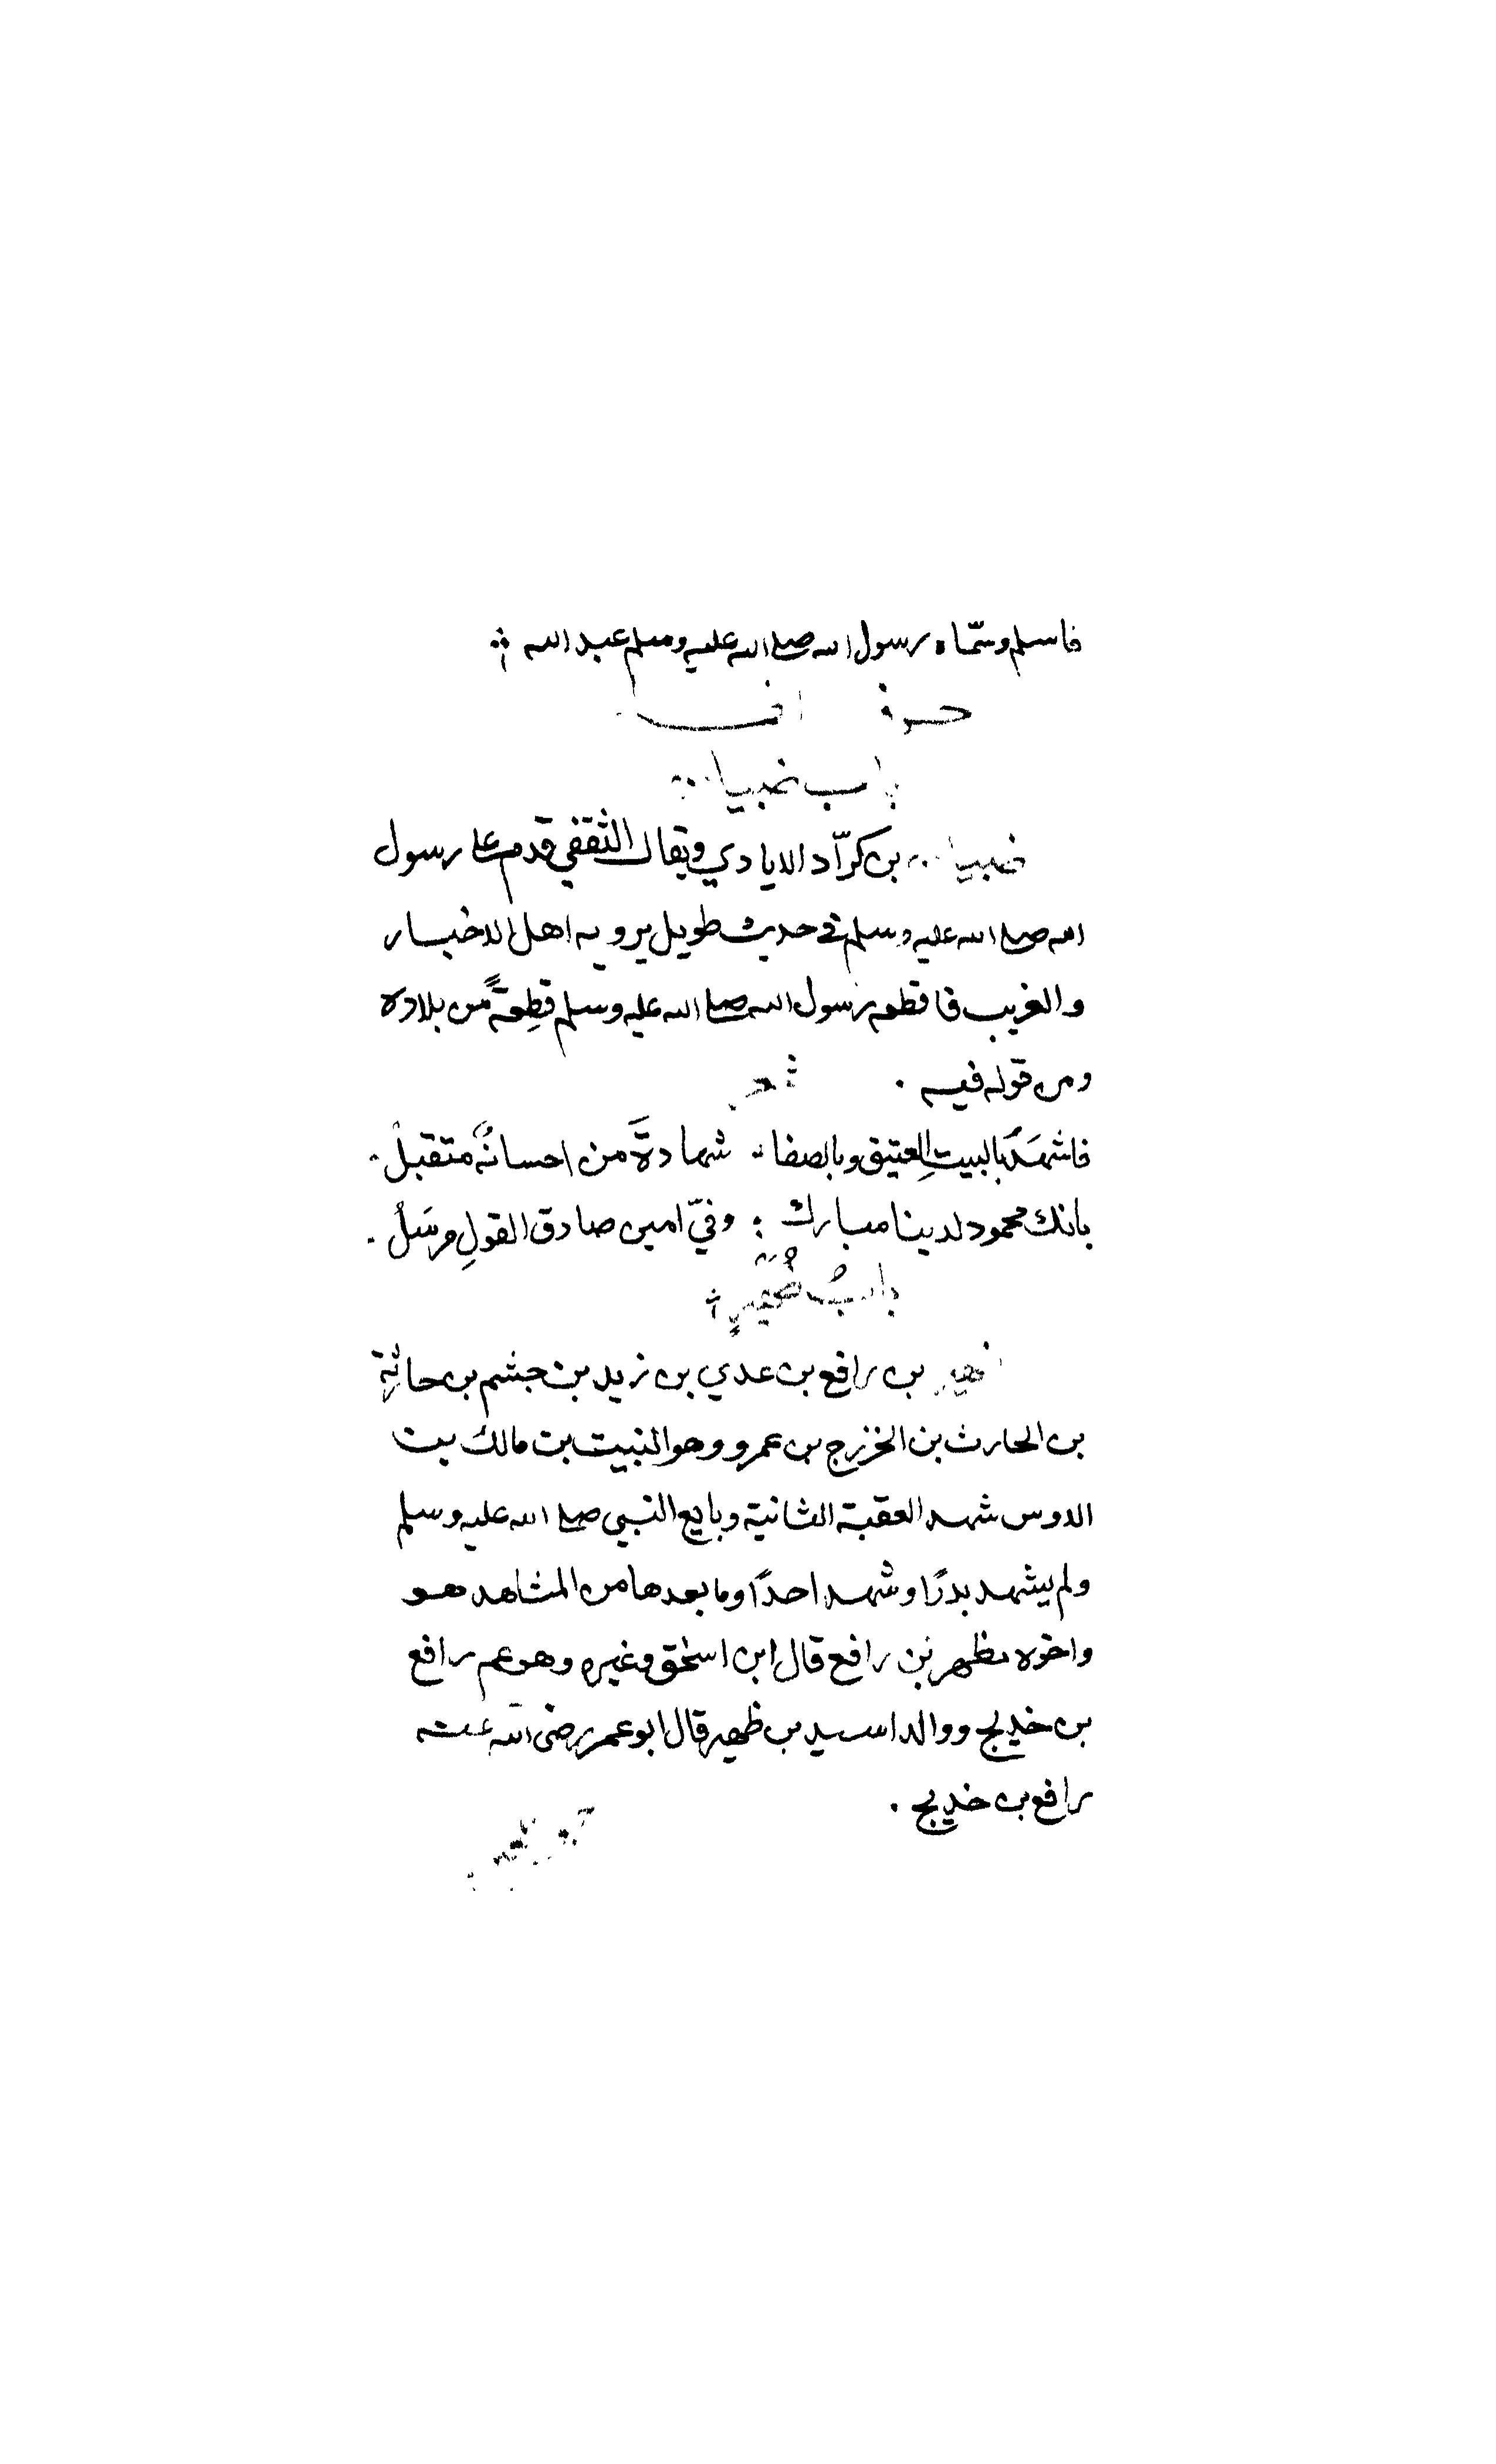 فاسلم وسمّاه رسول الله صلى الله عليه وسلم عبد الله
حرف
باب ضبيان
ضبيان بن كرّاد الايادي ويقال الثقفي قدم على رسول
الله صلى الله عليه وسلم في حديث طويل يرويه اهل الاخبار
والغريب فاقطعه رسول الله صلى الله عليه وسلم قطِعةً من بلاده
ومن قوله فيه . شعر
فاشهَدُ بالبيتِ العتيق وبالصفا شهادةَ من احسانُه متقبلُ
بانك محمود لدينا مبارك وفيّ امين صادق القولِ مرسَلُ
بابُ ظُهَيرٍ
ظهير بن رافع بن عدي بن زيد بن جشم بن حارثة
بن الحارث بن الخزرج بن عمرو وهو النبيت بن مالك بن
الاوس شهد العقبة الثانية وبايع النبي صلى الله عليه وسلم
ولم يشهد بدرًا وشهد احدًا وما بعدها من المشاهد هو
واخوه مظهر بن رافع قال ابن اسحٰق وغيره وهو عم رافع
بن خديج ووالد اسيد بن ظهير قال ابو عمر رضى الله عنه
رافع بن خديج .